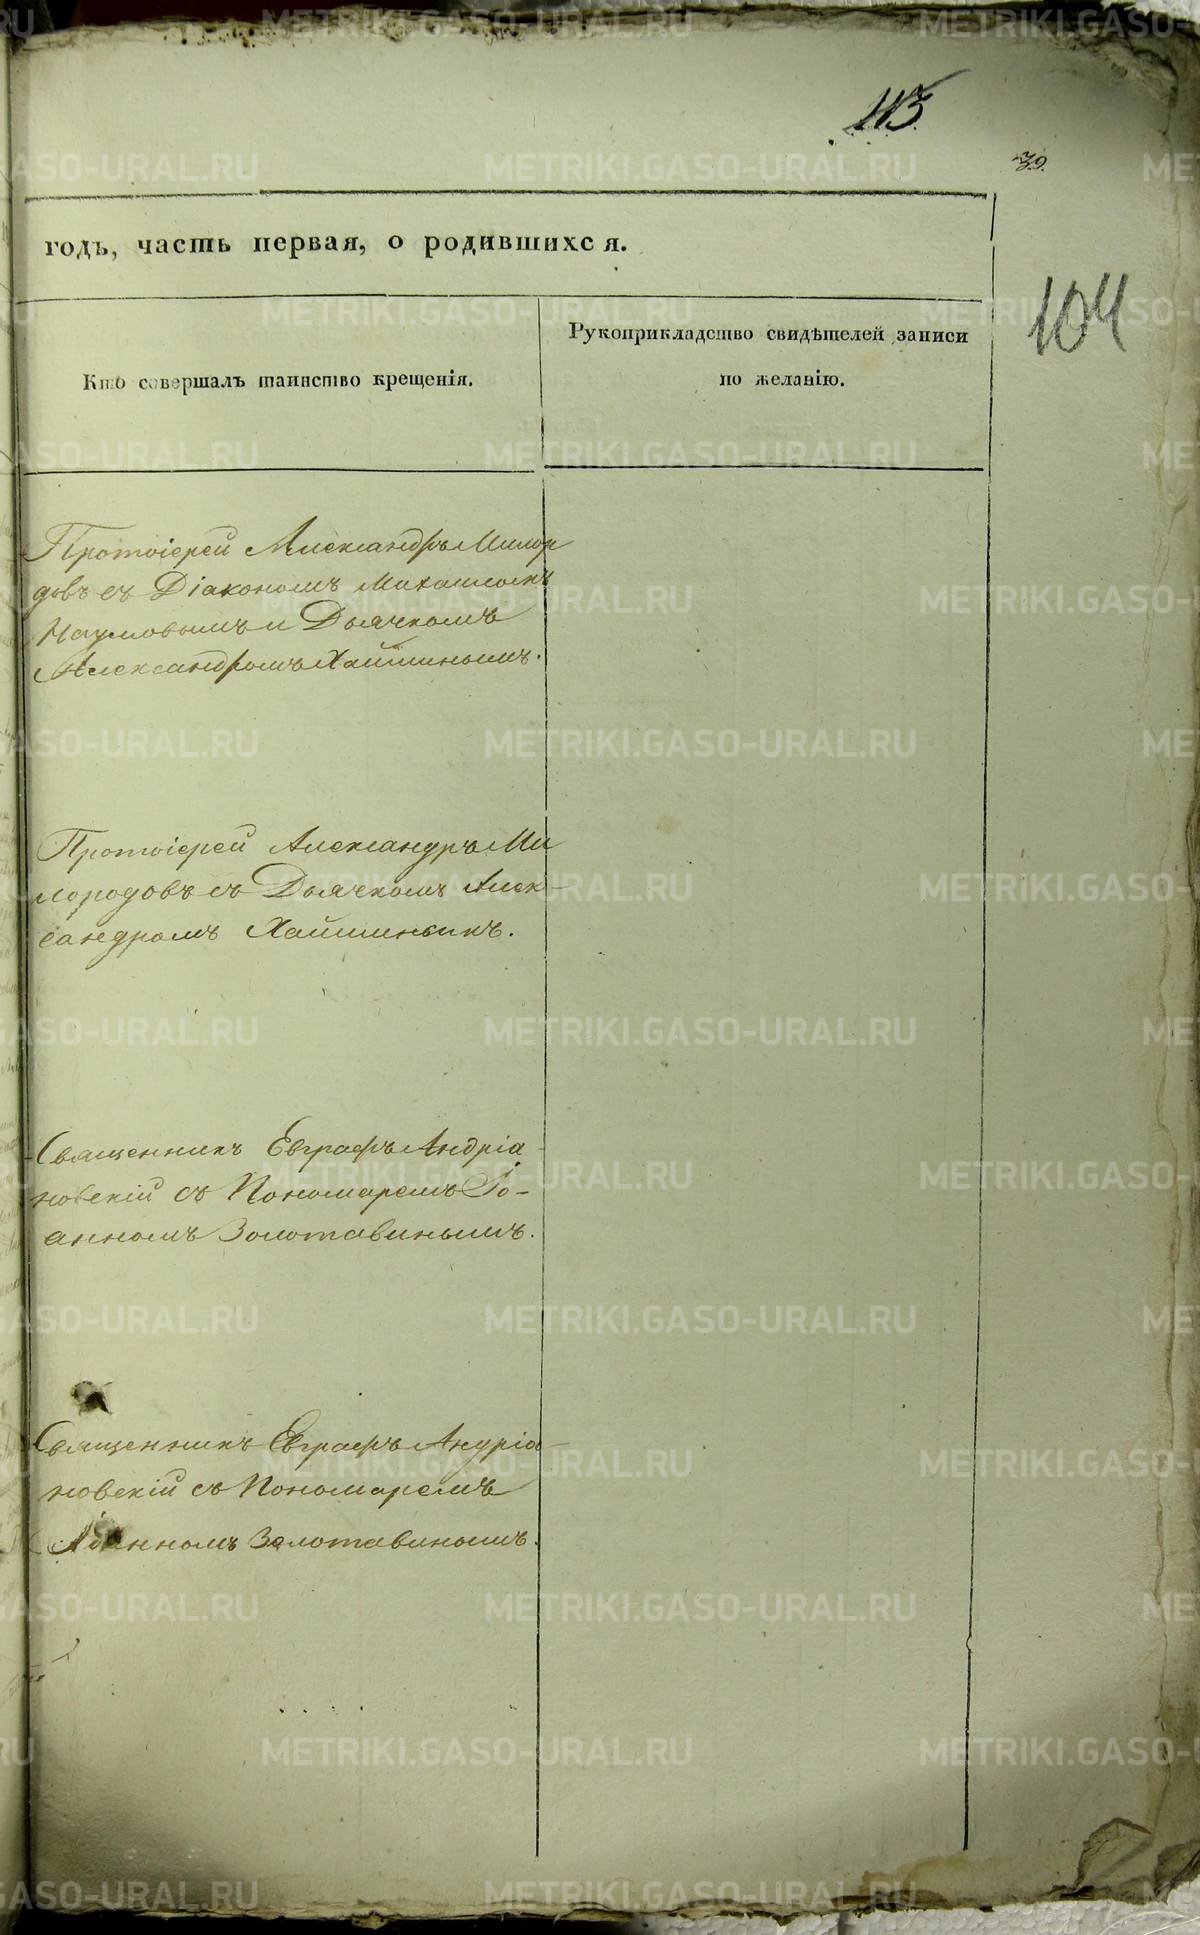 113.
39.
годъ, часть первая, о родившихся.
104
Кто совершалъ таинство крещенія.
Рукоприкладство свидѣтелей записи
по желанію.
Протоіерей Александръ Милор
довъ съ Діакономъ Михаиломъ
Наумовымъ и Дьячкомъ
Александромъ Хайминымъ.
Протоіерей Александръ Ми
лородовъ съ Дьячкомъ Алек-
сандромъ Хайминымъ.
Священникъ Евграфъ Андріа
новскій съ Пономаремъ Іо-
анномъ Золотавинымъ.
Священникъ Евграфъ Андріа-
новскій съ Пономаремъ
Іоанномъ Золотавинымъ.
METRIKI.GASO-URAL.RU